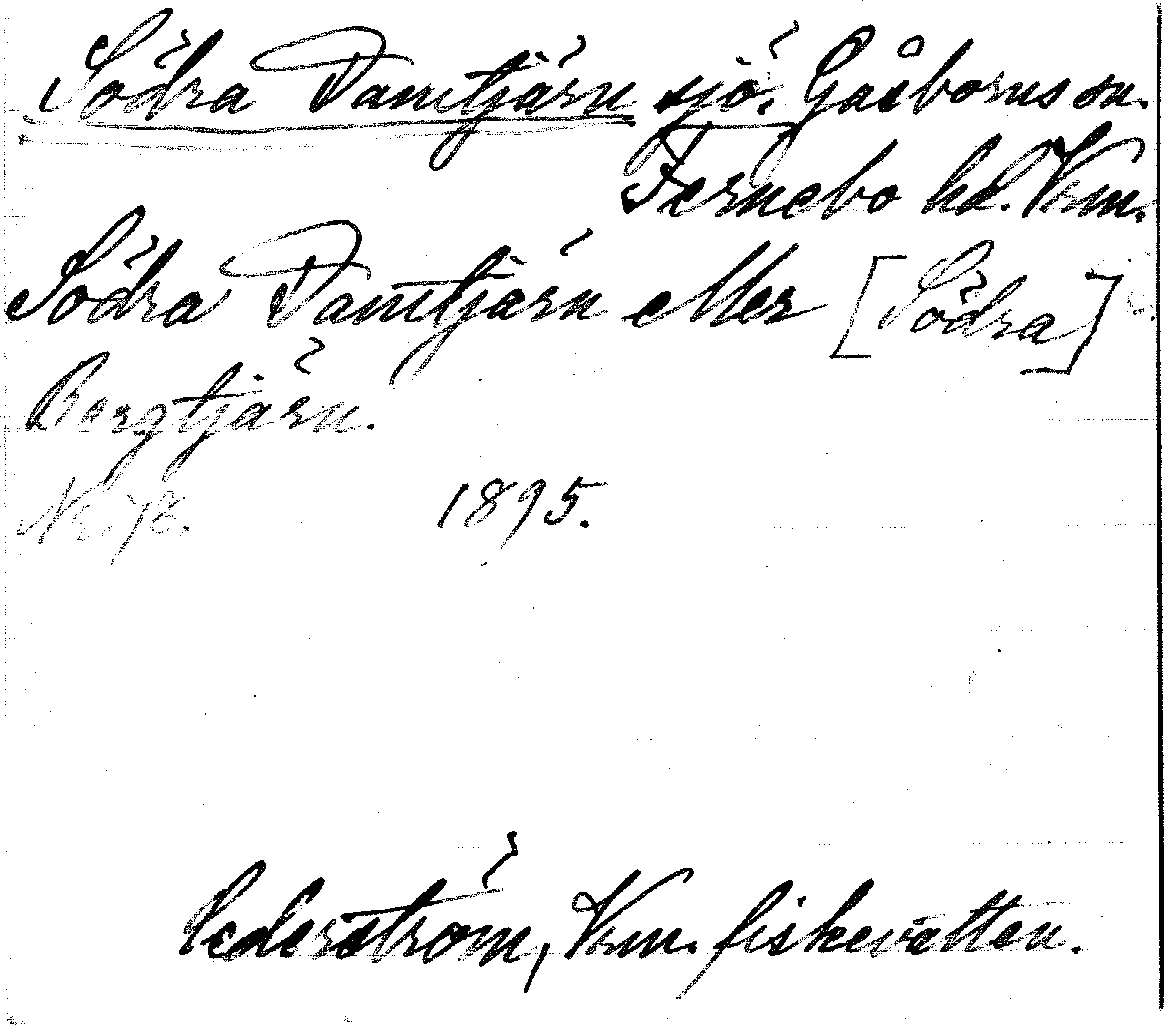 Södra Damtjärn sjö. Gåsborns sn.
Fernebo hd. Vrm.
Södra Damtjärn eller [Södra]
Bergtjärn.
Nr. 78. 1895.
Cederström, Vrm. fiskevatten.